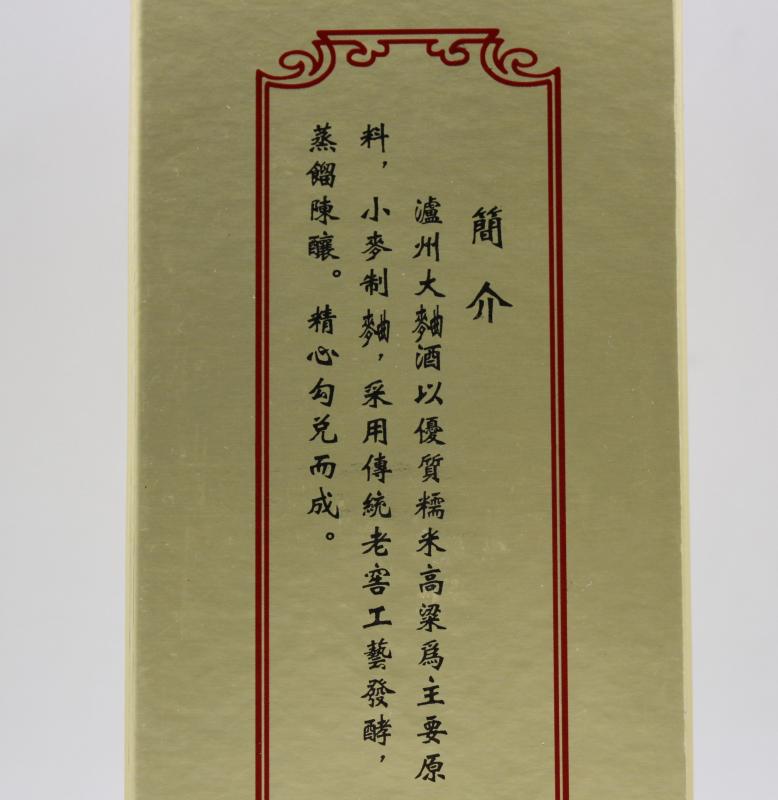 簡介
瀘州大麯酒以優質糯米高粱爲主要原
料，小麥制麯，采用傳統老窖工藝發酵，
蒸餾陳釀。精心勾兑而成。